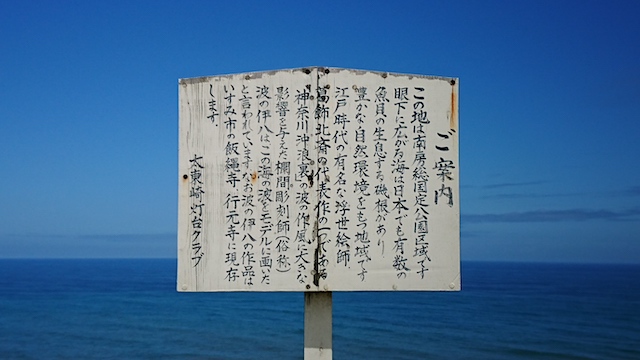 ご案内
この地は南房総国定公園区域です
眼下に広がる海は日本でも有数の
魚貝の生息する磯根があり、
豊かな自然環境をもつ地域です
江戸時代の有名な浮世絵師、
葛飾北斎の代表作の一つである
「神奈川沖浪裏」の波の作風に大きな
影響を与えた欄間彫刻師（俗称）
波の伊八はこの海の波をモデルに画いた
と言われています。なお波の伊八の作品は
いすみ市の飯縄寺、行元寺に現存
します。
太東崎灯台クラブ